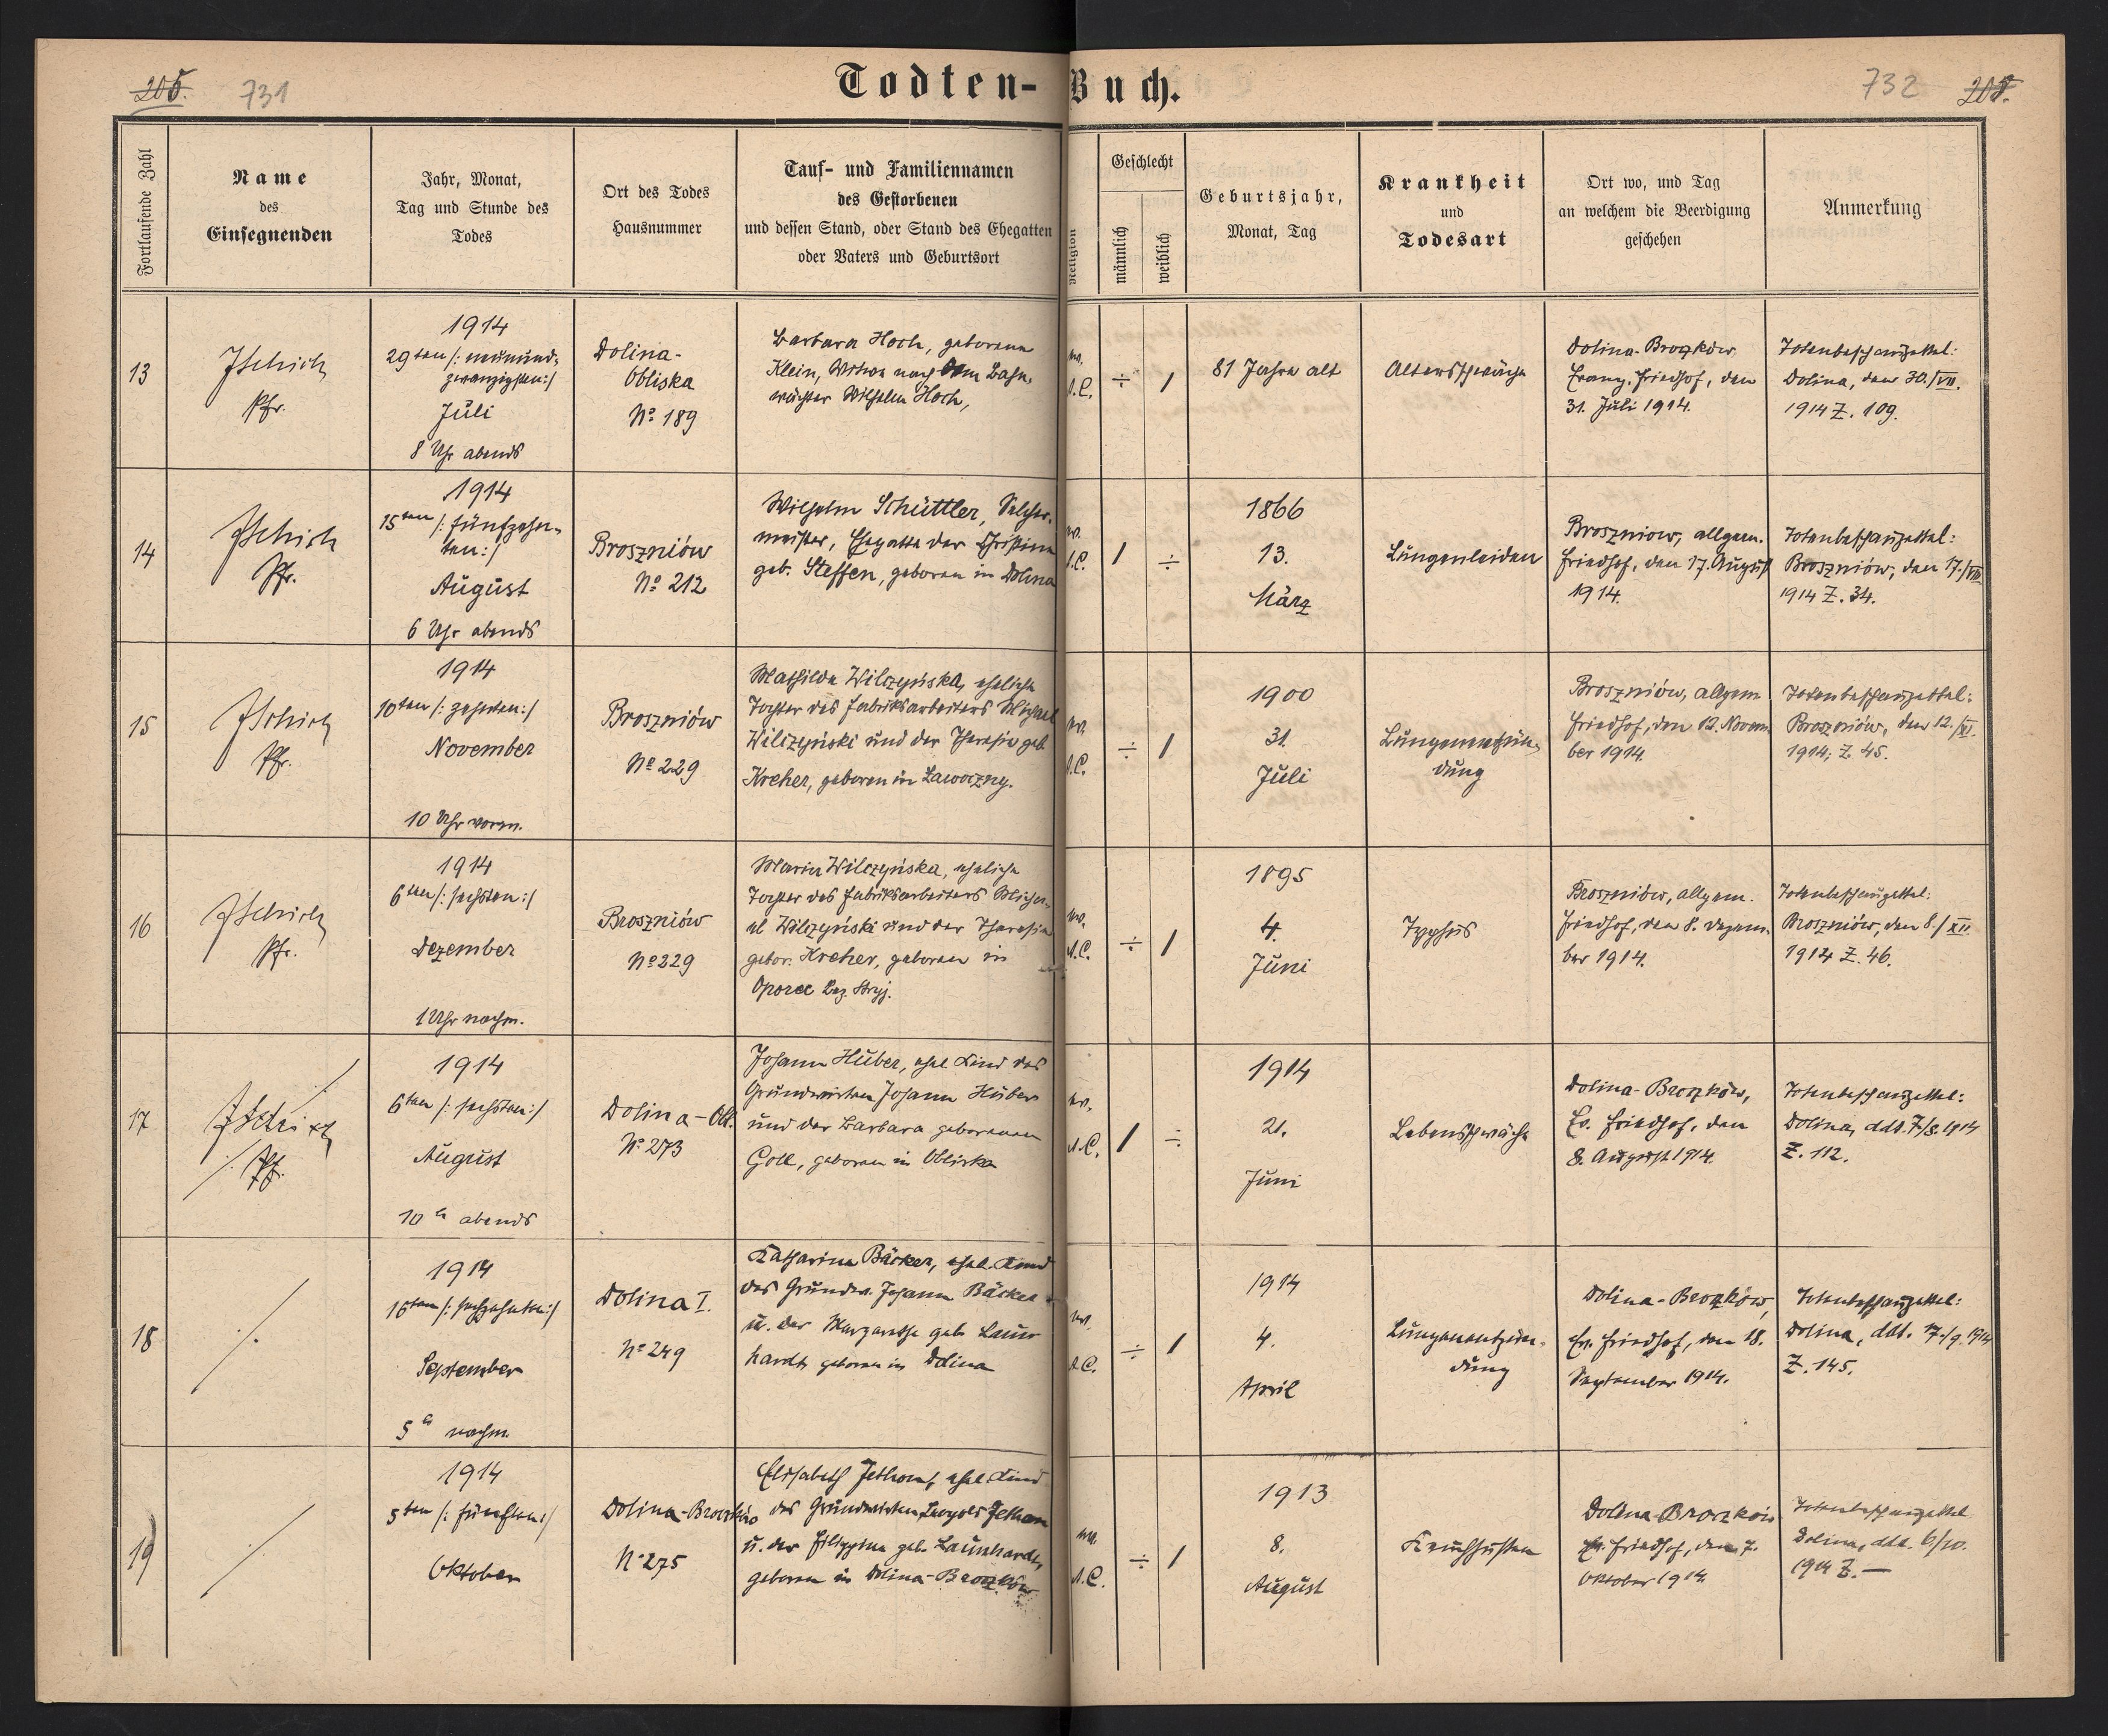 205. 731
Todten-Buch.
732 205.
Fortlaufende Zahl
Name
des
Einsegnenden
Jahr, Monat,
Tag und Stunde des
Todes
Ort des Todes
Hausnummer
Tauf- und Familiennamen
des Gestorbenen
und dessen Stand, oder Stand des Ehegatten
oder Vaters und Geburtsort
Religion
Geschlecht
männlich
weiblich
Geburtsjahr,
Monat, Tag
Krankheit
und
Todesart
Ort wo, und Tag
an welchem die Beerdigung
geschehen
Anmerkung
13
Pfr.
1914
29ten /: neunund-
zwanzigsten :/
Juli
8 Uhr abends
Dolina-
Obliska
No 189
Barbara Hoch, geborene
Klein, Witwe nach dem Bahn-
wächter Wilhelm Hoch,
ev.
A.C.
÷
1
81 Jahre alt
Altersschwäche
Dolina-Broczków
Evang. Friedhof, den
31. Juli 1914.
Totenbeschauzettel:
Dolina, den 30./VII.
1914 Z. 109.
14
Pfr.
1914
15ten /: fünfzehn-
ten :/
August
6 Uhr abends
Broszniów
No 212
Wilhelm Schüttler, Selcher-
meister, Ehegatte der Christine
geb. Steffen, geboren in Dolina
ev.
A.C.
1
÷
1866
13.
März
Lungenleiden
Broszniow, allgem.
Friedhof, den 17. August
1914.
Totenbeschauzettel:
Broszniów, den 17./VIII
1914 Z. 34.
15
Pfr.
1914
10ten /: zehnten :/
November
10 Uhr vorm.
Broszniów
No 229
Mathilde Wilczyńska, eheliche
Tochter des Fabriksarbeiters Michael
Wilczyński und der Theresia geb.
Kreher, geboren in Lawoczny.
ev.
A.C.
÷
1
1900
31.
Juli
Lungenentzün-
dung
Broszniów, allgem.
Friedhof, den 12. Novem-
ber 1914.
Totenbeschauzettel:
Broszniów, den 12./XI.
1914; Z. 45.
16
Pfr.
1914
6ten /: sechsten :/
Dezember
1 Uhr nachm.
Broszniów
No 229
Maria Wilczyńska, eheliche
Tochter des Fabriksarbeiters Micha-
el Wilczyński und der Theresia
gebor. Kreher, geboren in
Oporze Bez. Stryj.
ev.
A.C.
÷
1
1895
4.
Juni
Typhus
Broszniów, allgem.
Friedhof, den 8. Dezem-
ber 1914.
Totenbeschauzettel:
Broszniów, den 8./XII.
1914 Z. 46.
17
Pf.
1914
6ten /: sechsten :/
August
10 h abends
Dolina-Obl.
No 273
Johann Huber, ehel. Kind des
Grundwirten Johann Huber
und der Barbara geborenen
Goll, geboren in Obliska
ev.
A.C.
1
÷
1914
21.
Juni
Lebensschwäche
Dolina-Broczków,
Ev. Friedhof, den
8. August 1914.
Totenbeschauzettel:
Dolina, ddt. 7/8. 1914
Z. 112.
18
1914
16ten /: sechzehnten :/
September
5 h nachm.
Dolina I.
No 249
Katharina Bäcker, ehel. Kind
des Grundw. Johann Bäcker
u. der Margarethe geb. Laun-
hardt, geboren in Dolina
ev.
A.C.
÷
1
1914
4.
April
Lungenentzün-
dung
Dolina-Broczków,
Ev. Friedhof, den 18.
September 1914.
Totenbeschauzettel:
Dolina, ddt. 17./9. 1914
Z. 145.
19
1914
5ten /: fünften :/
Oktober
Dolina-Broczków
No 275
Elisabeth Jethon, ehel. Kind
des Grundwirten Leopold Jethon
u. der Filippine geb. Launhardt,
geboren in Dolina-Broczków
ev.
A.C.
÷
1
1913
8.
August
Keuchhusten
Dolina-Broczków
Ev. Friedhof, den 7.
Oktober 1914.
Totenbeschauzettel
Dolina, ddt. 6/10.
1914 Z. —